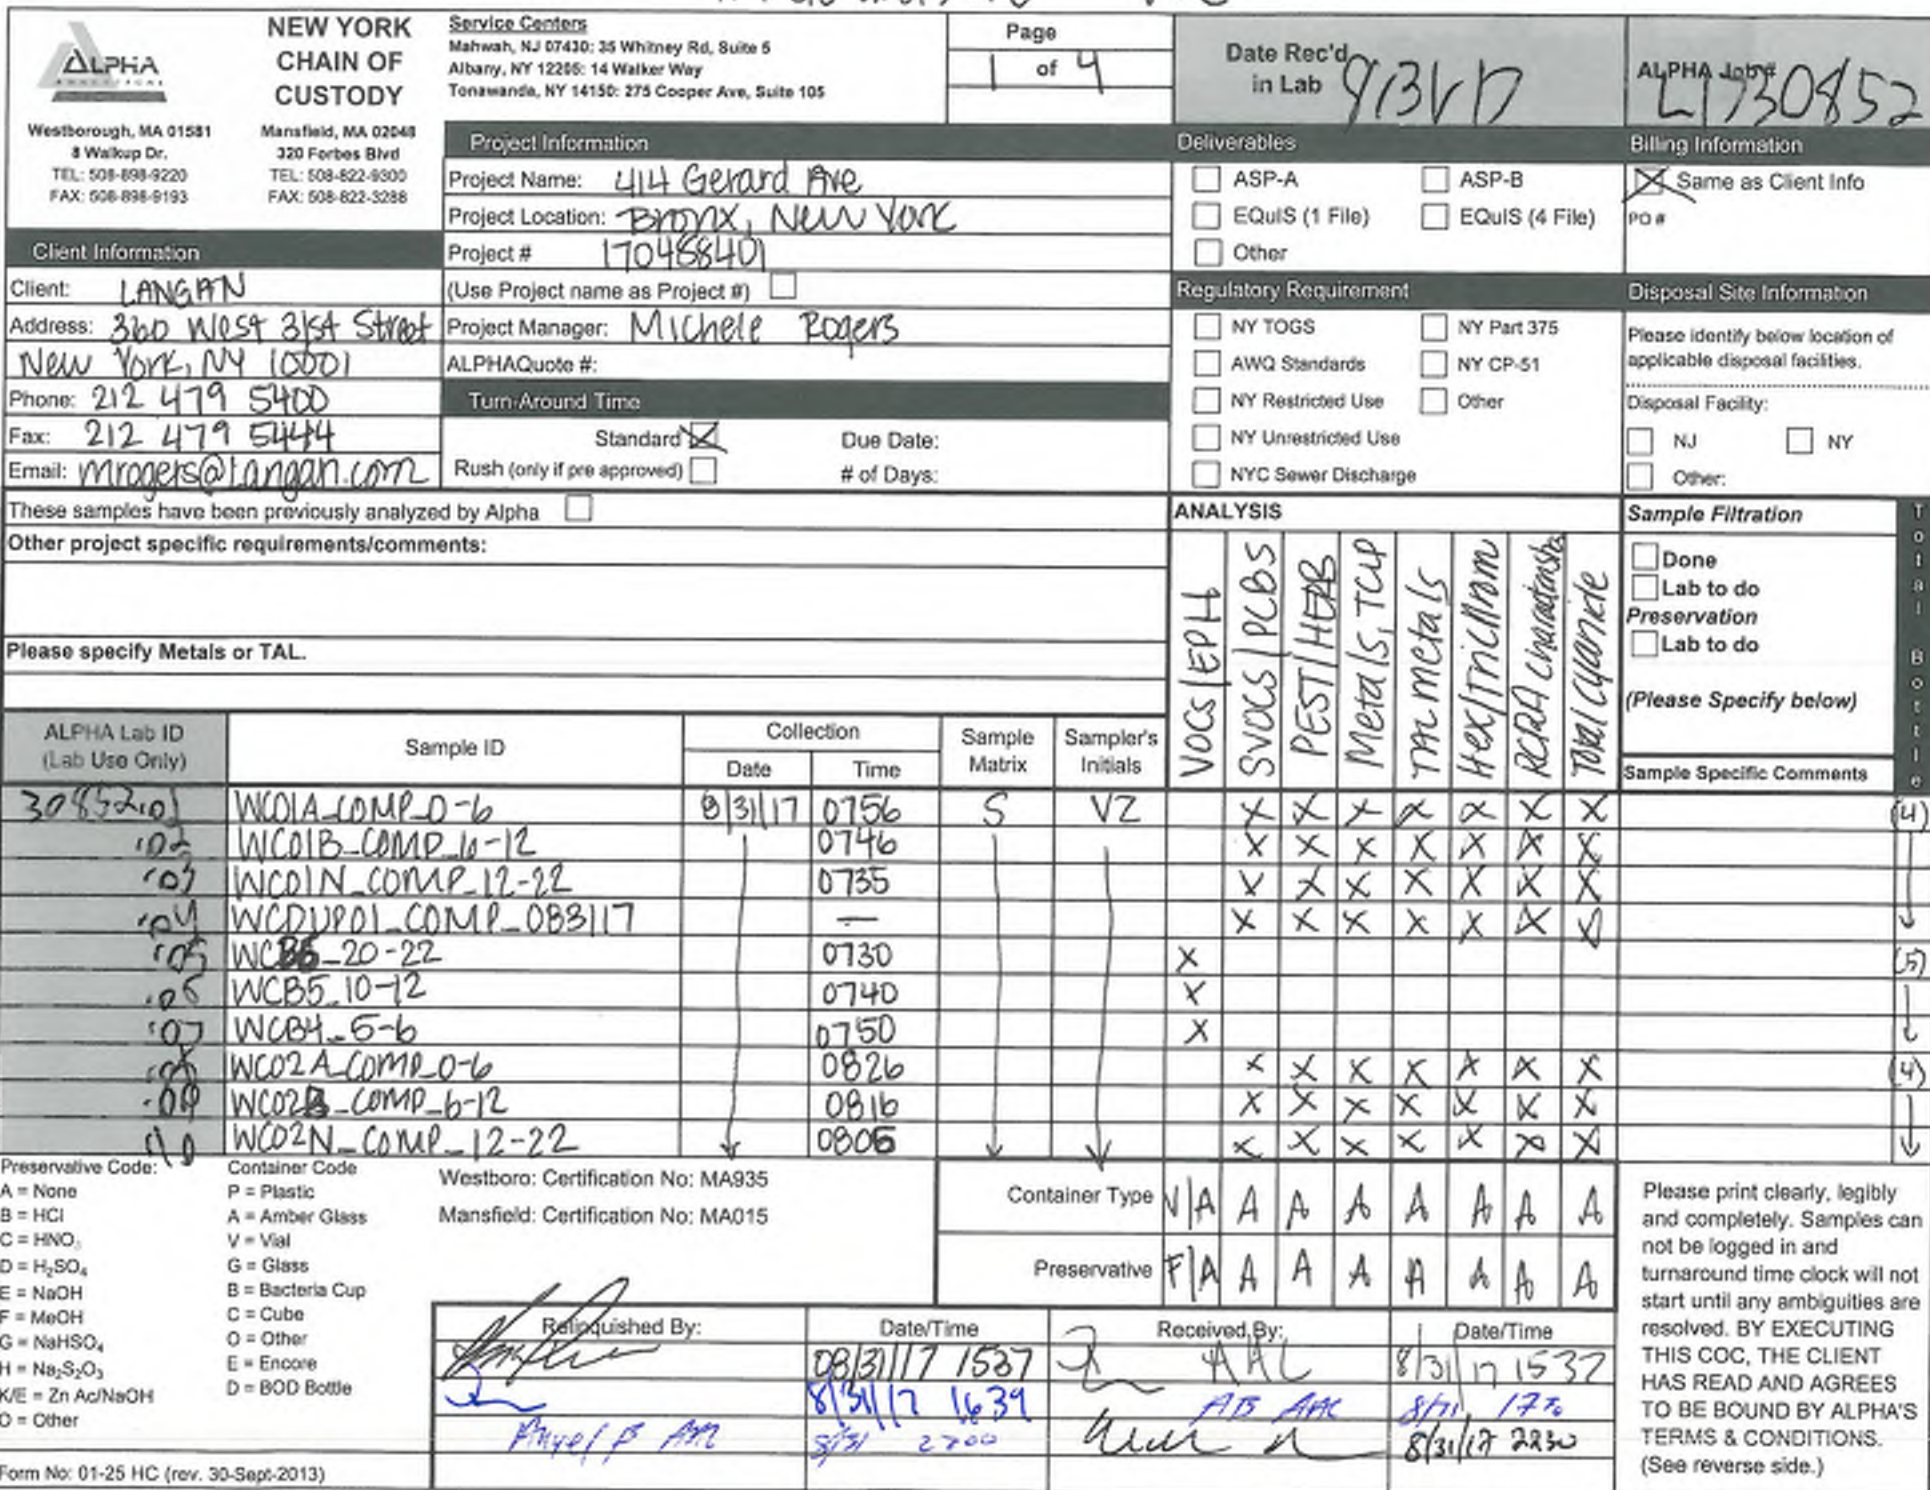 ALPHA
NEW YORK
CHAIN OF
CUSTODY
Westborough, MA 01581
8 Walkup Dr.
TEL: 508-898-9220
FAX: 508-898-9193
Mansfield, MA 02048
320 Forbes Blvd
TEL: 508-822-9300
FAX: 508-822-3288
Service Centers
Mahwah, NJ 07430: 35 Whitney Rd, Suite 5
Albany, NY 12205: 14 Walker Way
Tonawanda, NY 14150: 275 Cooper Ave, Suite 105
Page
1 of 4
Date Rec'd
in Lab 8/31/17
ALPHA Job #
L1730852
Client Information
Client: LANGAN
Address: 360 West 31st Street
New York, NY 10001
Phone: 212 479 5400
Fax: 212 479 5444
Email: mrogers@Langan.com
Project Information
Project Name: 414 Gerard Ave
Project Location: Bronx, New York
Project # 170458401
(Use Project name as Project #)
Project Manager: Michele Rogers
ALPHAQuote #:
Turn-Around Time
Standard X Due Date:
Rush (only if pre approved) # of Days:
Deliverables
ASP-A ASP-B
EQuIS (1 File) EQuIS (4 File)
Other
Regulatory Requirement
NY TOGS NY Part 375
AWQ Standards NY CP-51
NY Restricted Use Other
NY Unrestricted Use
NYC Sewer Discharge
Billing Information
X Same as Client Info
PO #
Disposal Site Information
Please identify below location of
applicable disposal facilities.
Disposal Facility:
NJ NY
Other:
These samples have been previously analyzed by Alpha
Other project specific requirements/comments:
Please specify Metals or TAL.
ANALYSIS
VOCs/EPH
SVOCs/PCBs
PEST/HERB
Metals, TCLP
TAL metals
Hex/Tri Chrom
RCRA Characteristics
Total Cyanide
Sample Filtration
Done
Lab to do
Preservation
Lab to do
(Please Specify below)
Sample Specific Comments
Total Bottle
ALPHA Lab ID
(Lab Use Only)
Sample ID
Collection
Date Time
Sample
Matrix
Sampler's
Initials
30852.01 WC01A_COMP_0-6 8/31/17 0756 S VZ X X X X X X X (4)
.02 WC01B_COMP_6-12 0746 X X X X X X X
.03 WC01N_COMP_12-22 0735 X X X X X X X
.04 WCDUP01_COMP_083117 — X X X X X X X
.05 WCB5_20-22 0730 X (5)
.06 WCB5_10-12 0740 X
.07 WCB4_5-6 0750 X
.08 WC02A_COMP_0-6 0826 X X X X X X X (4)
.09 WC02B_COMP_6-12 0816 X X X X X X X
.10 WC02N_COMP_12-22 0805 X X X X X X X
Preservative Code:
A = None
B = HCl
C = HNO3
D = H2SO4
E = NaOH
F = MeOH
G = NaHSO4
H = Na2S2O3
K/E = Zn Ac/NaOH
O = Other
Container Code
P = Plastic
A = Amber Glass
V = Vial
G = Glass
B = Bacteria Cup
C = Cube
O = Other
E = Encore
D = BOD Bottle
Westboro: Certification No: MA935
Mansfield: Certification No: MA015
Container Type V/A A A A A A A A
Preservative F/A A A A A A A A
Relinquished By: Date/Time Received By: Date/Time
08/31/17 1537 AAL 8/31/17 1537
8/31/17 1639
8/31 2200 8/31/17 2230
Please print clearly, legibly
and completely. Samples can
not be logged in and
turnaround time clock will not
start until any ambiguities are
resolved. BY EXECUTING
THIS COC, THE CLIENT
HAS READ AND AGREES
TO BE BOUND BY ALPHA'S
TERMS & CONDITIONS.
(See reverse side.)
Form No: 01-25 HC (rev. 30-Sept-2013)